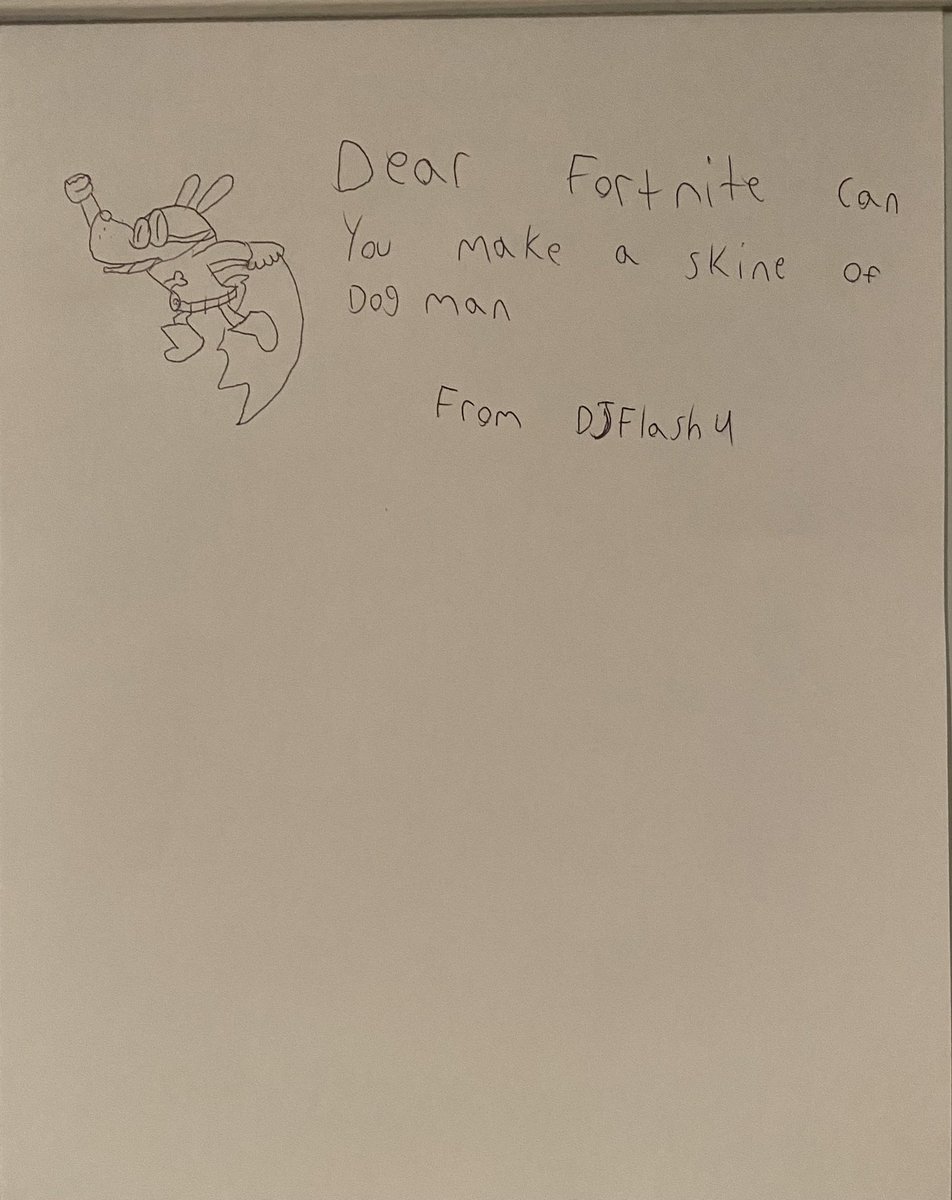 Dear Fortnite can
You make a skine of
Dog man
From DJFlash4